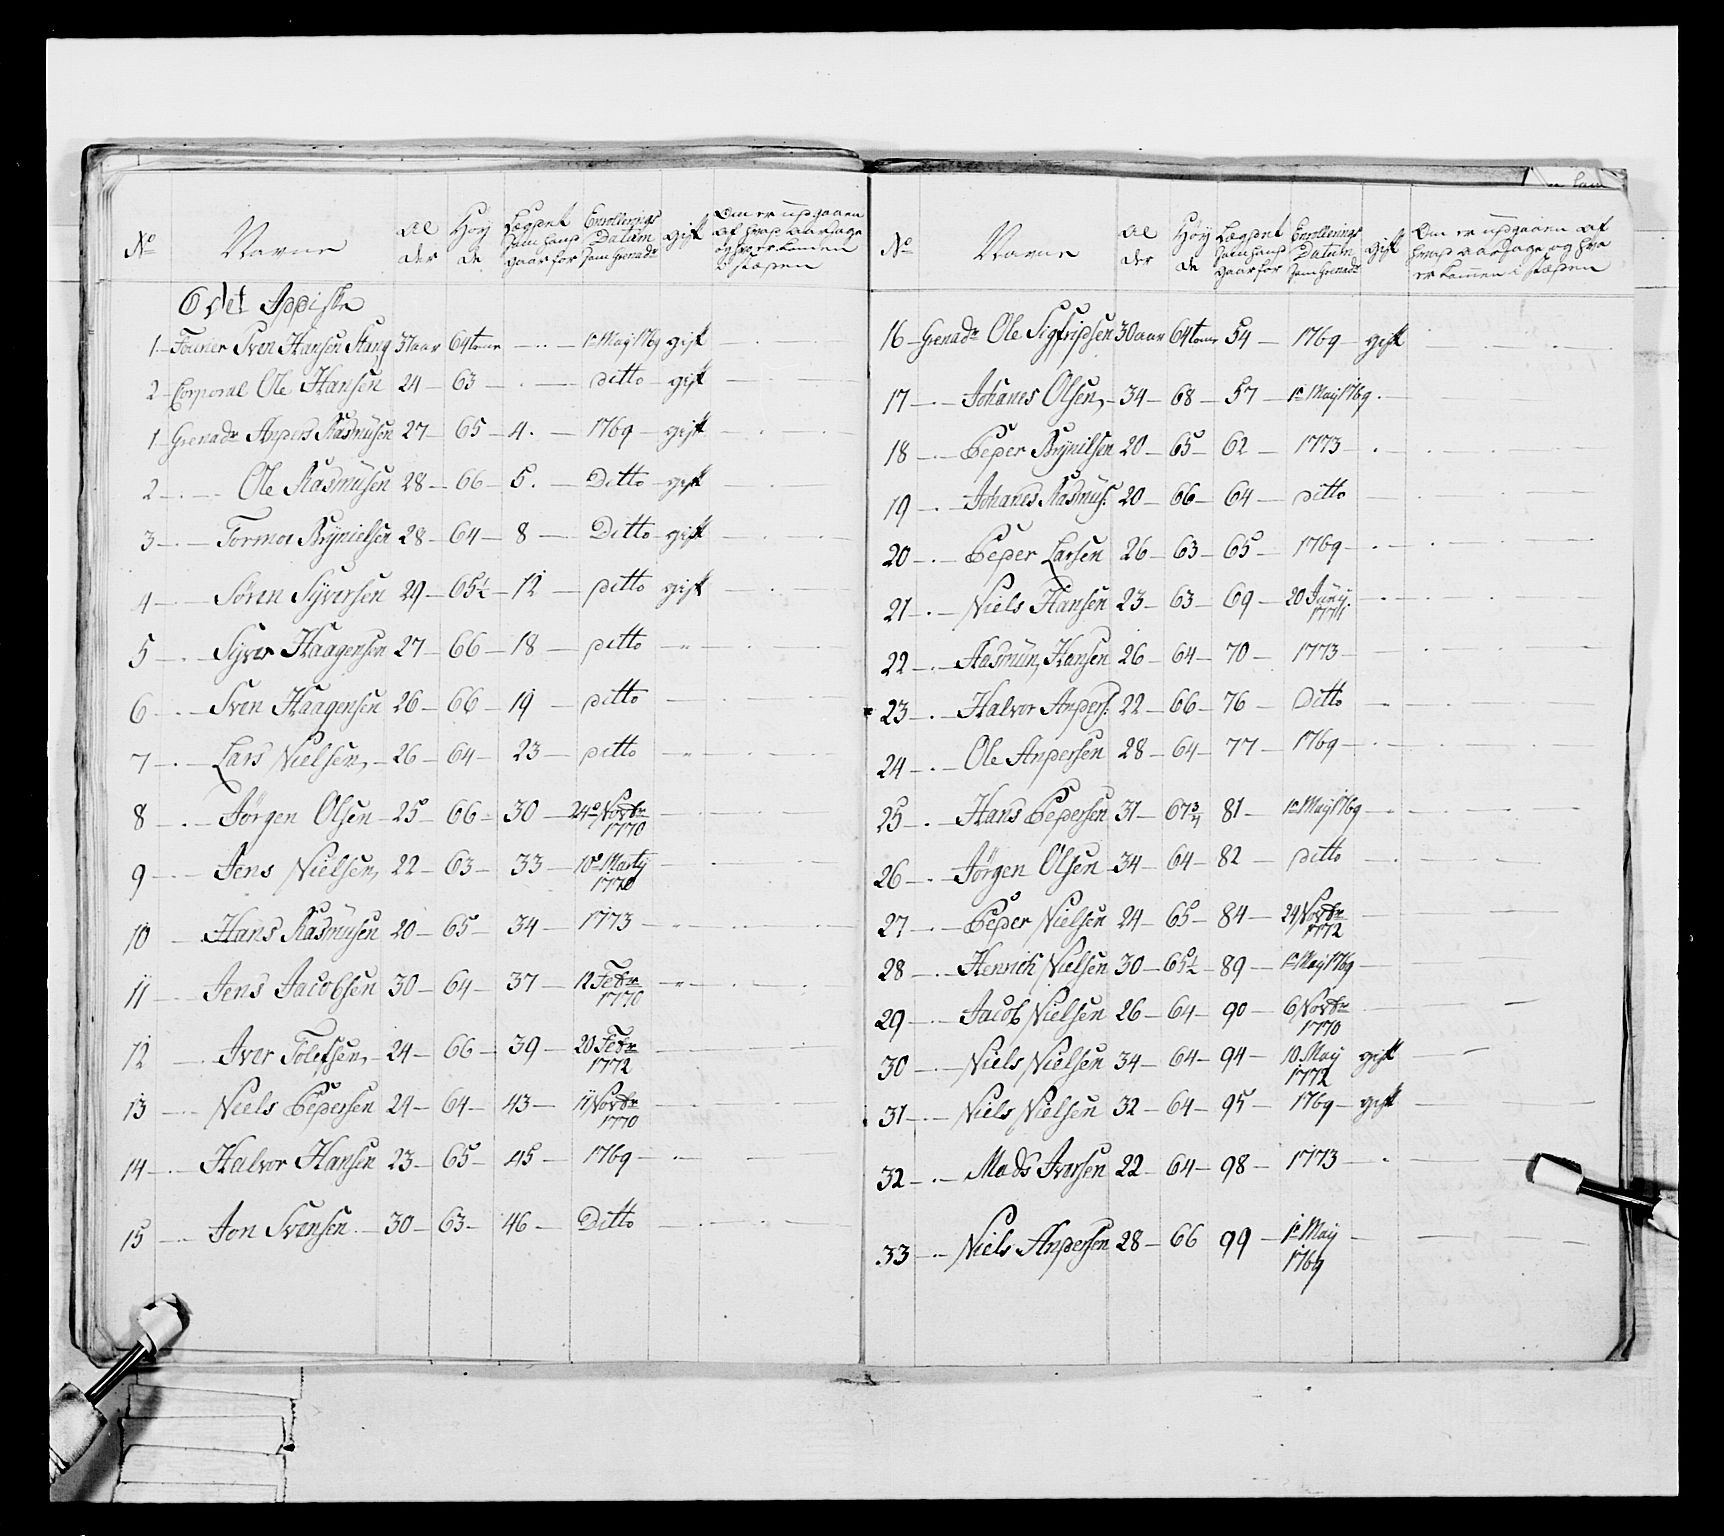 No Navne Al der Höy de Lægdet ham hand gaar for Enrollerings Datum som Grenadr gift Om er udgaaen af hvad aarsage og hvor kommen i stæden
Fourier Sven Hansen Stang 37 aar 64 tomr — 1e May 1769 gift
2 Corporal Ole Hansen 24 — 63 — ditto — gift
1 Grenadr Anders Rasmusen 27 — 65 — 4. — 1769 — gift
2 — Ole Rasmüsen 28 — 66 — 5. — Ditto — gift
3 — Tormoe Brÿnielsen 28 — 64 — 8 — Ditto — gift
4 — Sören Sÿversen 29 — 65½ — 12 — ditto gift
5 — Sÿver Haagensen 27 — 66 — 18 — ditto
6 — Sven Haagensen 26 — 66 — 19 — ditto
7 — Lars Nielsen, — 26 — 64 — 23 — ditto
8 — Jörgen Olsen 25 — 66 — 30 — 24e Novbr 1770
9 — Jens Nielsen, 22 — 63 — 33 — 10e Martÿ 1770
10 — Hans Rasmüsen 20 — 65 — 34 — 1773
11 — Jens Jacobsen 30 — 64 — 37 — 12 Febr 1770
12 — Iver Tolefsen, 24 — 66 — 39 — 20 Febr 1772
13 — Niels Pedersen 24 — 64 — 43 — 11 Novbr 1770
14 — Halvor Hansen 23 — 65 — 45 — 1769
15 — Jon Svensen — 30 — 63 — 46 — Ditto
No Navne Al der Höy de Lægdet ham hand gaar for Enrollerings Datum som Grenadr gift Om er udgaaen af hvad aarsage og hva er kommen i stæden
16 — Grenadr Ole Sigfridsen 30 aar 64 tomr 54 — 1769 — gift
17 — Johanes Olsen, — 34 — 68 — 57 — 1e May 1769
18 — Peder Brÿnilsen 20 — 65 — 62 — 1773
19 — Johanes Rasmüs: 20 — 66 — 64 — ditto
20 — Peder Larsen 26 — 63 — 65 — 1769
21 — Niels Hansen 23 — 63 — 69 — 20 Junÿ. 1771
22 — Rasmün, Hansen 26 — 64 — 70 — 1773
23 — Halvor Anders: 22 — 66 — 76 — Ditto
24 — Ole Andersen 28 — 64 — 77 — 1769
25 — Hans Pedersen 31 — 67¾ 81 — 1e May 1769
26 — Jörgen Olsen — 34 — 64 — 82 — ditto
27 — Peder Nielsen 24 — 65 — 84 — 24 Novbr 1772
28 — Henrich Nielsen 30 — 65½ — 89 — 1e May 1769
29 — Jacob Nielsen 26 — 64 — 90 — 6 Novbr 1770
30 — Niels Nielsen 34 — 64 — 94 — 10 May 1772 gift
31 — Niels Nielsen 32 — 64 — 95 — 1769 — gift
32 — Mads Iversen 22 — 64 — 98 — 1773
33 — Niels Andersen 28 — 66 99 — 1e May 1769